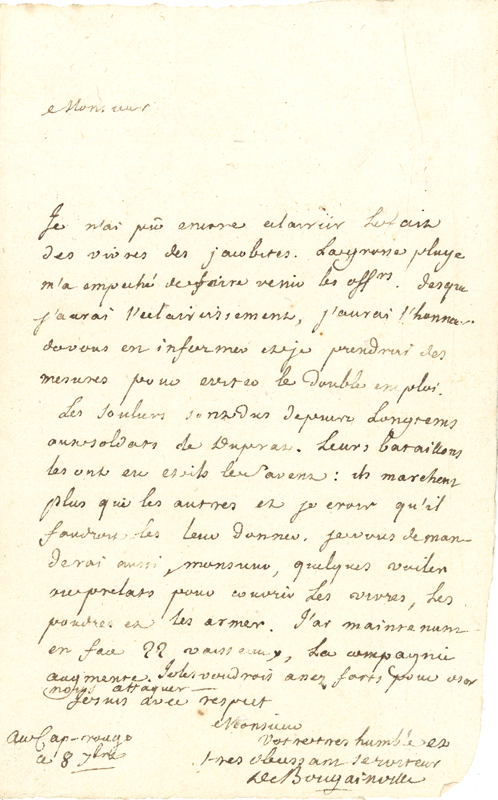 Monsieur
Je n'ai pû encore eclaircir le fait
des vivres des jacobites. La grone pluye
m'a empeché de faire venir les offrs. desque
j'aurai l'eclaircissement, j'aurai l'honneur
de vous en informer et je prendrai des
mesures pour eviter le double emploi.
Les souliers sont dus depuis Longtems
aux soldats de Duprat. Leurs bataillons
les ont eu et ils le savent : ils marchent
plus que les autres et je crois qu'il
faudroit les leur donner. je vous deman-
derai aussi, monsieur, quelques voiles
ou prelats pour couvrir Les vivres, Les
poudres et les armes. J'ai maintenant
en face 22 vaisseaux, La compagnie
augmente. Je les voudrois assez forts pour oser
nous attaquer
Je suis avec respect
Monsieur
Votre tres humble et
tres obeissant serviteur
De Bougainville
Au Cap-rouge
ce 8 7bre